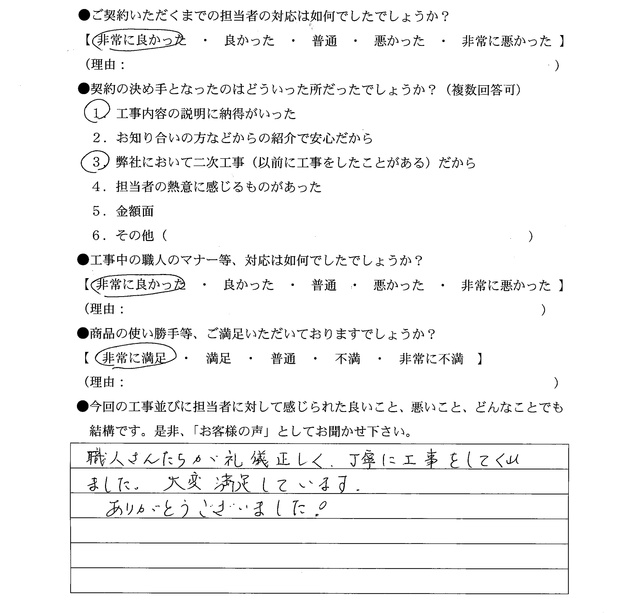 ●ご契約いただくまでの担当者の対応は如何でしたでしょうか？
【 非常に良かった ・ 良かった ・ 普通 ・ 悪かった ・ 非常に悪かった 】
（理由：　）
●契約の決め手となったのはどういった所だったでしょうか？（複数回答可）
１．工事内容の説明に納得がいった
２．お知り合いの方などからの紹介で安心だから
３．弊社において二次工事（以前に工事をしたことがある）だから
４．担当者の熱意に感じるものがあった
５．金額面
６．その他（　）
●工事中の職人のマナー等、対応は如何でしたでしょうか？
【 非常に良かった ・ 良かった ・ 普通 ・ 悪かった ・ 非常に悪かった 】
（理由：　）
●商品の使い勝手等、ご満足いただいておりますでしょうか？
【 非常に満足 ・ 満足 ・ 普通 ・ 不満 ・ 非常に不満 】
（理由：　）
●今回の工事並びに担当者に対して感じられた良いこと、悪いこと、どんなことでも
結構です。是非、「お客様の声」としてお聞かせ下さい。
職人さんたちが礼儀正しく、丁寧に工事をしてくれ
ました。大変満足しています。
ありがとうございました！